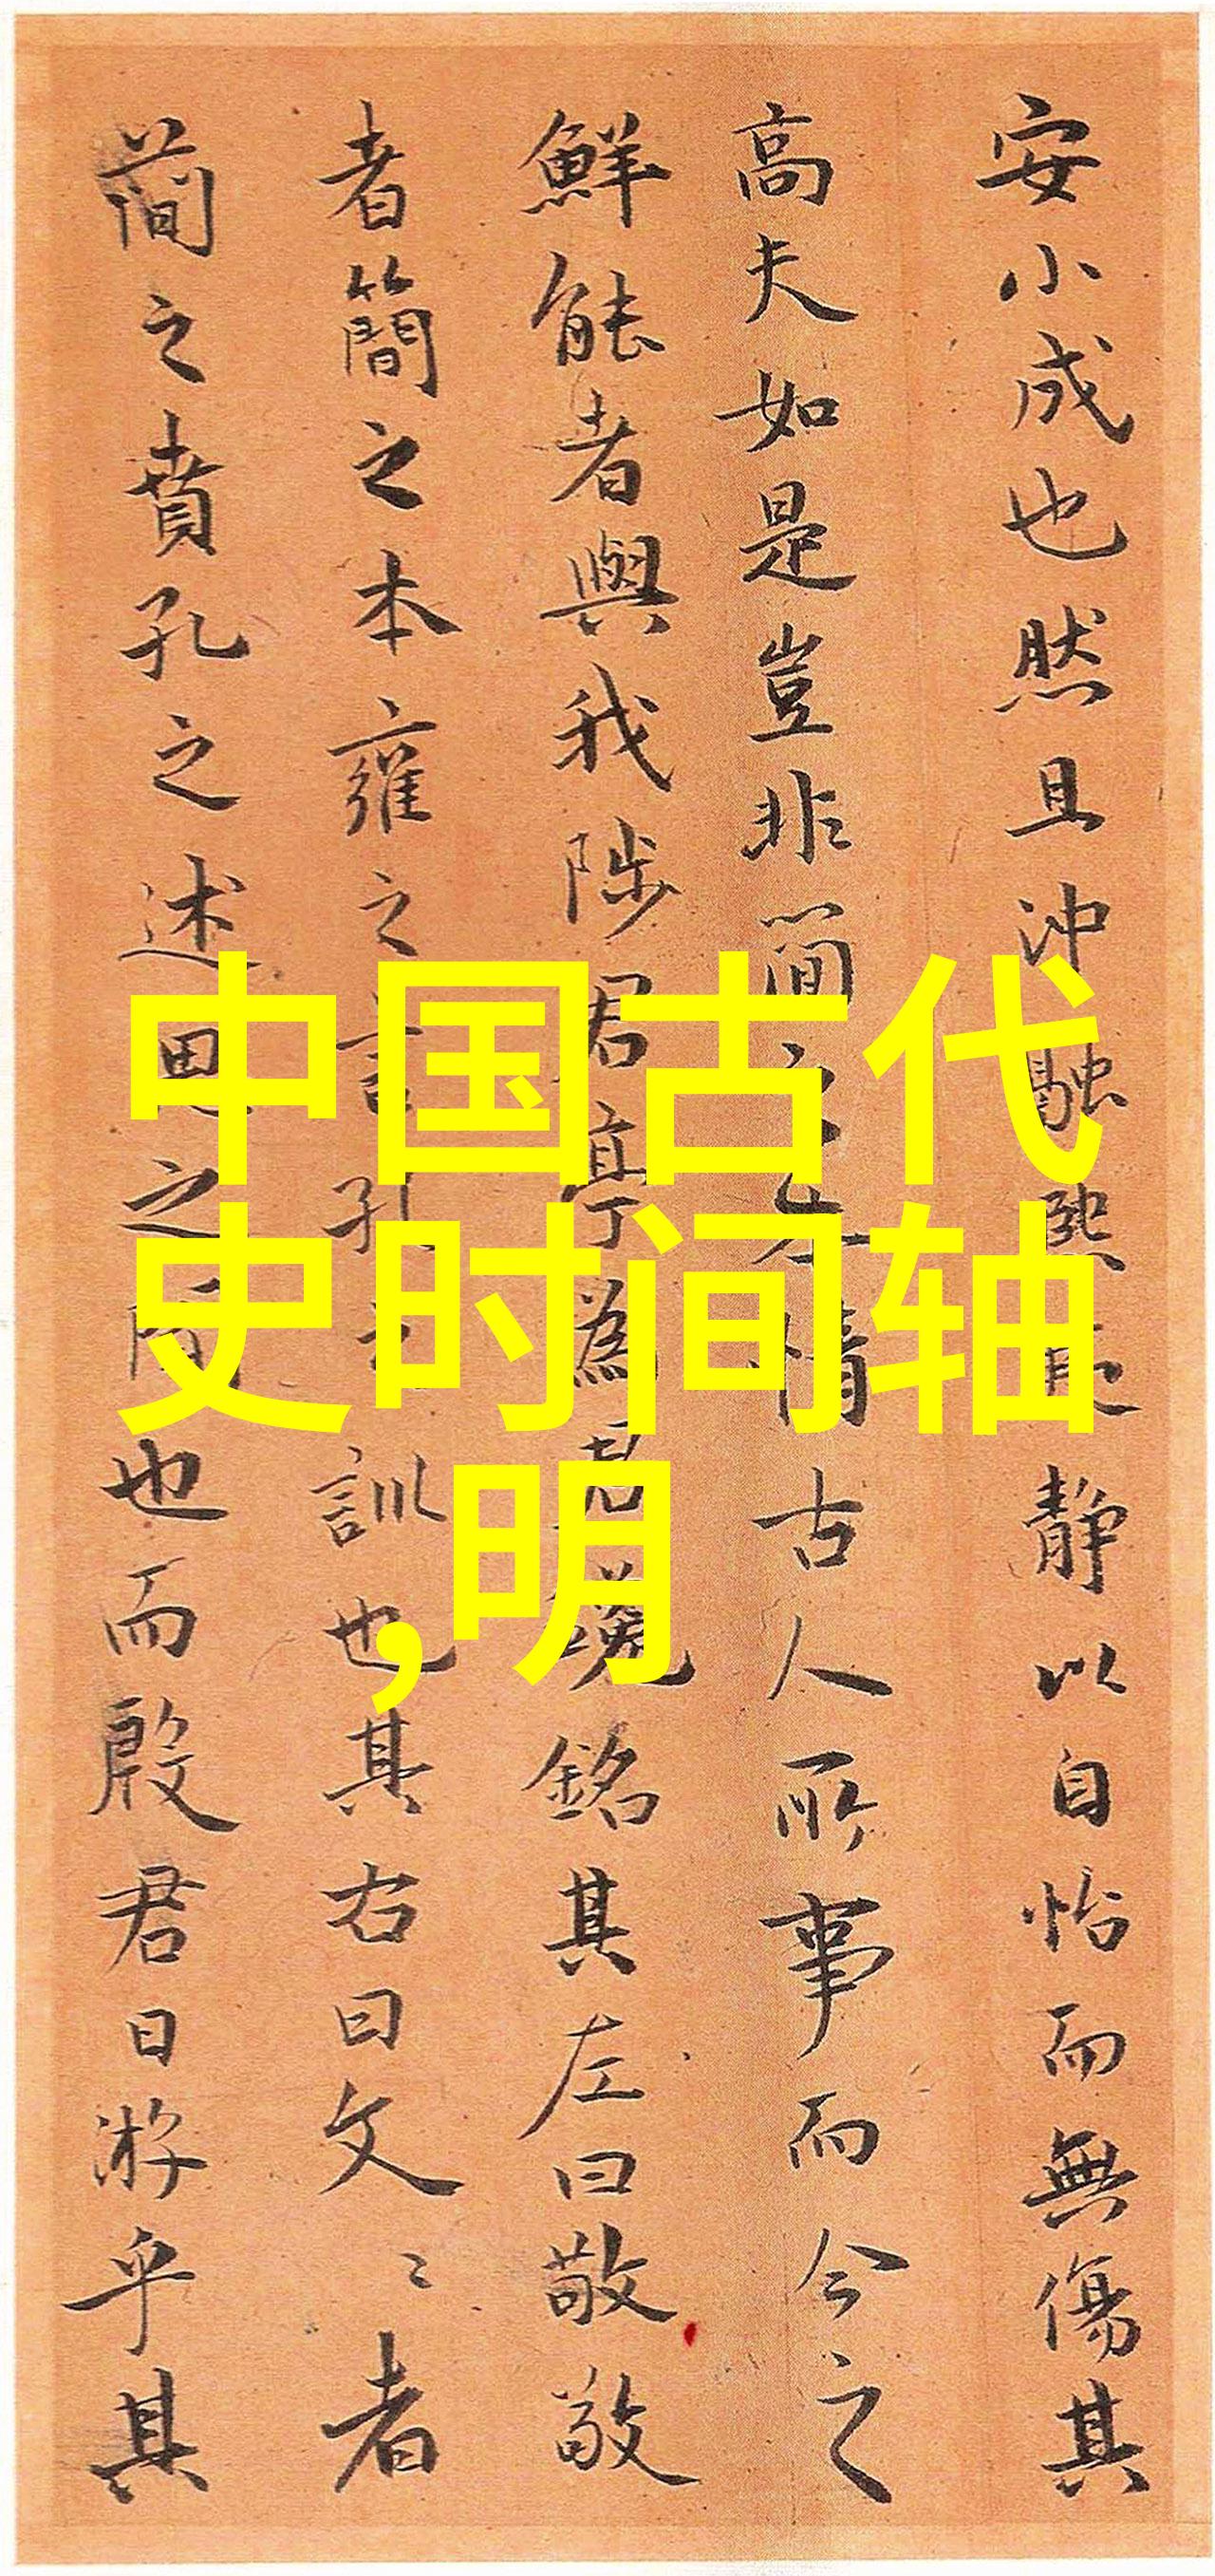 安小成也然且沖融熙
靜以自怡而無傷其
高夫如是豈非簡之
情古人所事而今之
鮮能者與我陟君亭為君
銘其左曰敬敬
者簡之本雍之言孔
訓也其右曰文〻者
簡之賁孔之述思之
也而殷君日游乎其
中国古代
史时间轴
,明